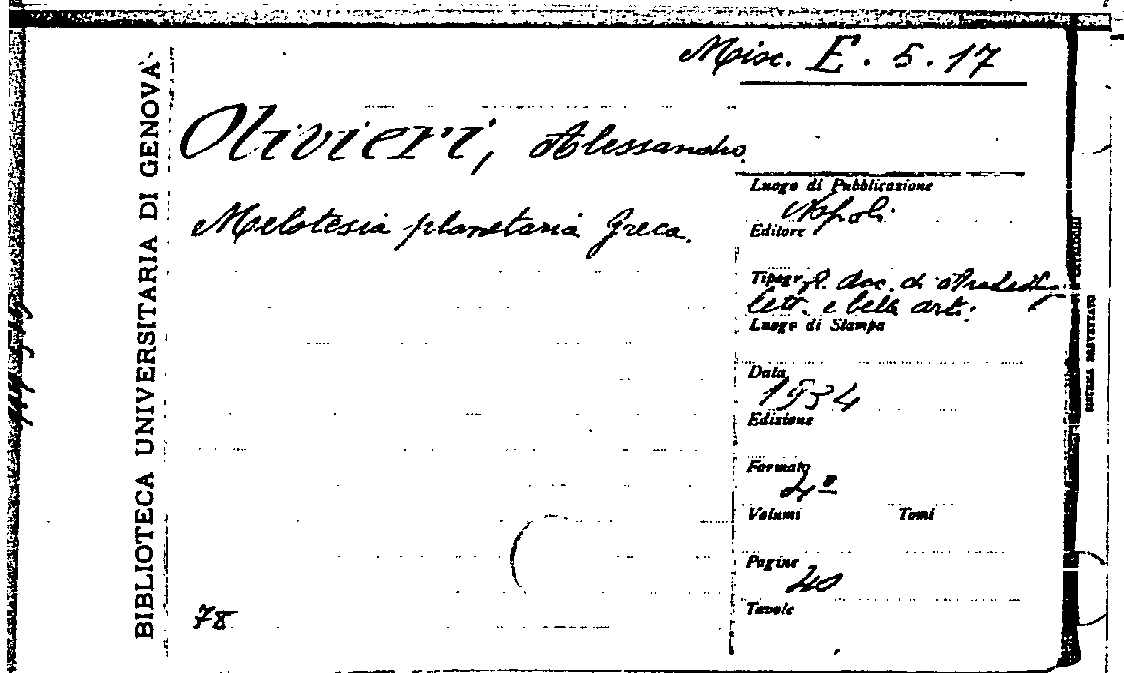 Misc. E. 5. 17
BIBLIOTECA UNIVERSITARIA DI GENOVA
Olivieri, Alessandro
Melotesia planetaria Greca.
Luogo di Pubblicazione
Napoli
Editore
Tipogr.
lett. e belle arti.
Luogo di Stampa
Data
1934
Edizione
Formato
4º
Volumi Tomi
Pagine
40
Tavole
78